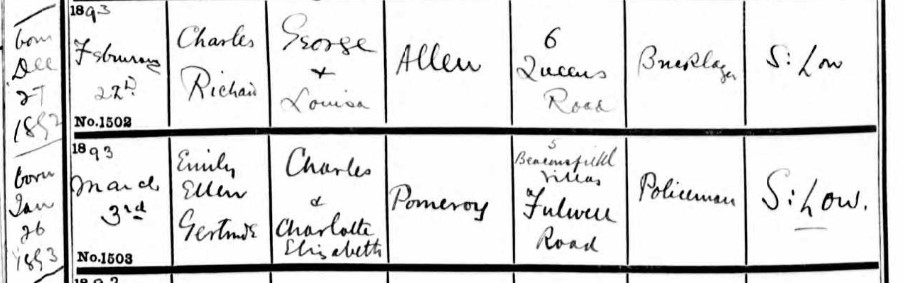 born
Dec
27
1892
1893
February
22D
No.1502
Charles
Richard
George
+
Louisa
Allen
6
Queens
Road
Bricklayer
S: Low
born
Jan
26
1893
1893
March
3rd
No.1503
Emily
Ellen
Gertrude
Charles
&
Charlotte
Elizabeth
Pomeroy
5
Beaconsfield
Villas
Fulwell
Road
Policeman
S: Low.